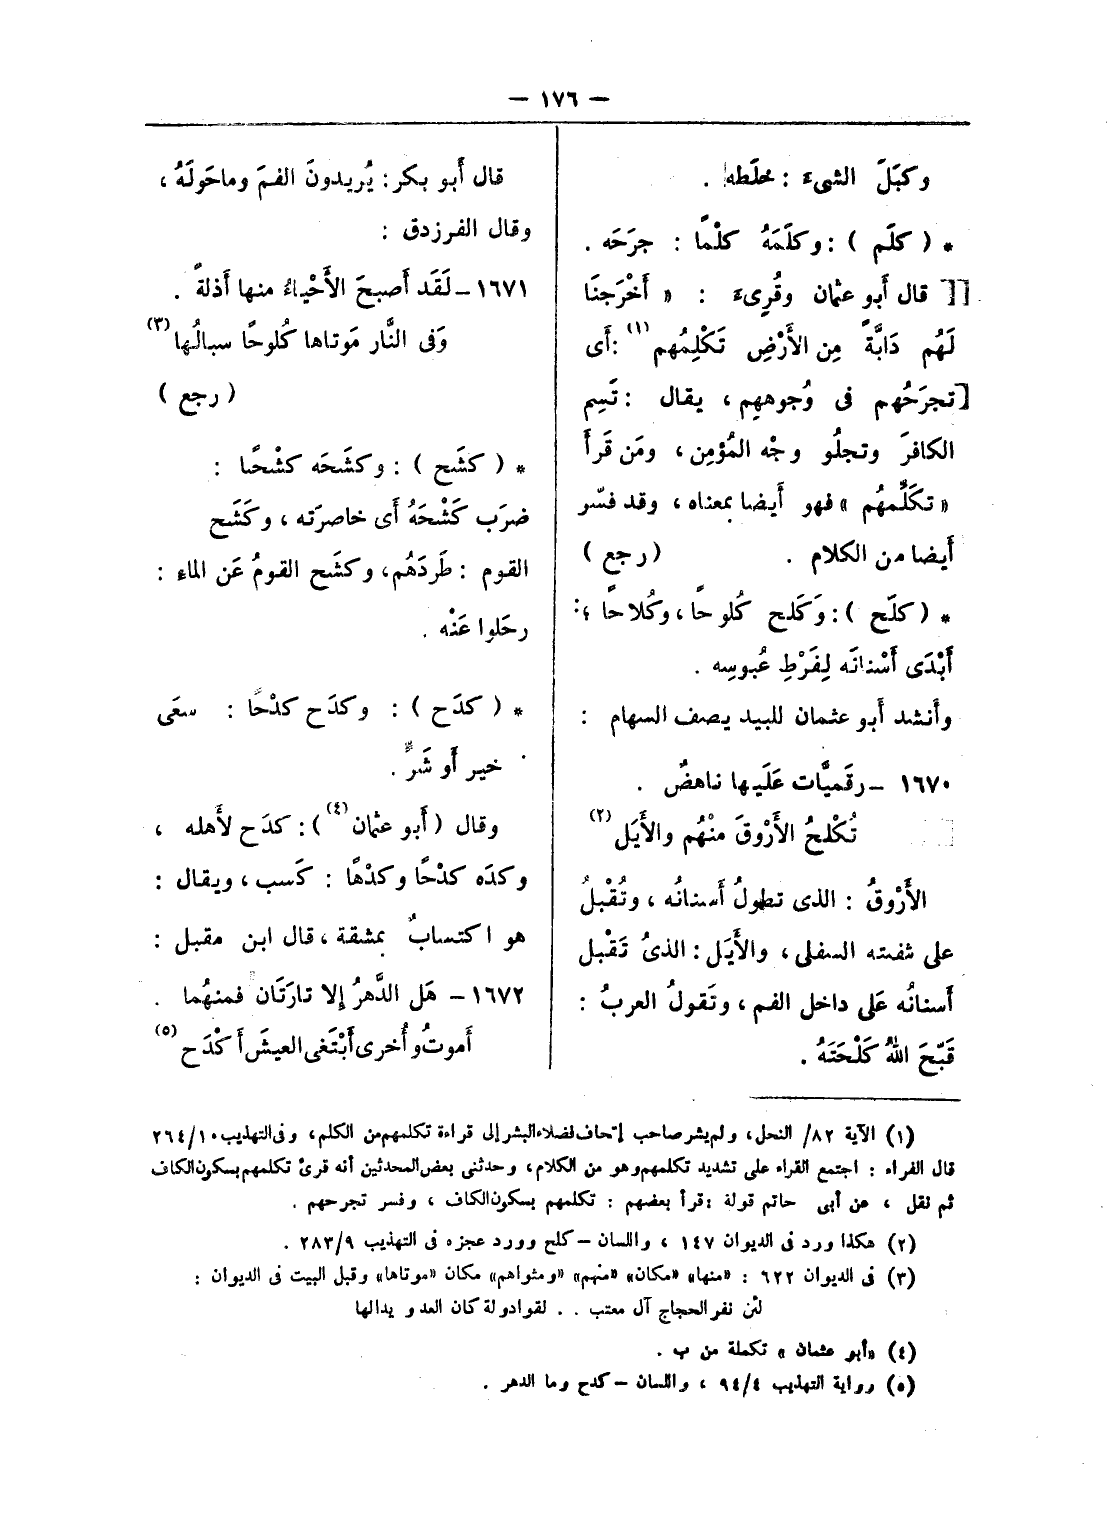 — ١٧٦ —
وكبَلَ الشىء : خلَطه .
* ( كلَم ) : وكلَمَهُ كلْمًا : جرَحَه .
[[ قال أَبو عثمان وقُرِىءَ : « أَخْرَجنَا
لَهُم دَابَّةً مِن الأَرْضِ تَكْلِمُهم (١) : أَى
[تجرَحُهم فى وُجوههِم ، يقال : تَسِم
الكافرَ وتجلُو وجْه المُؤمِن ، ومَن قَرأَ
« تكَلِّمهُم » فهو أَيضا بمعناه ، وقد فسّر
أَيضا من الكلام . ( رجع )
* ( كلَح ) : وَكَلح كُلوحًا ، وكُلاحًا ؛
أَبْدَى أَسْنانَه لِفَرْطِ عُبوسِه .
وأَنشد أَبو عثمان للبيد يصف السهام :
١٦٧٠ - رقَميَّات عَلَيها ناهضٌ .
تُكْلحُ الأَرْوقَ منْهُم والأَيَل (٢)
الأَرْوقُ : الذى تطولُ أَسنانُه ، وتُقْبلُ
على شفته السفلى ، والأَيَل : الذىُ تَقْبل
أَسنانُه عَلى داخل الفم ، وتَقولُ العربُ :
قَبّحَ اللهُ كَلْحَتَهُ .
قال أَبو بكر : يُريدونَ الفمَ وماحَولَهُ ،
وقال الفرزدق :
١٦٧١ - لَقَد أَصبحَ الأَحْياءُ منها أَذلةً .
وَفى النَّار مَوتاها كُلوحًا سبالُها (٣)
( رجع )
* ( كشَح ) : وكشَحَه كشْحًا :
ضرَب كَشْحَهُ أَى خاصرَته ، وكَشَح
القوم : طَردَهُم ، وكشَح القومُ عَن الماء :
رحَلوا عَنْه .
* ( كدَح ) : وكدَح كدْحًا : سعَى
خير أَو شَرٍّ .
وقال ( أَبو عثمان (٤) ) : كدَح لأَهله ،
وكدَه كدْحًا وكدْهًا : كَسب ، ويقال :
هو اكتسابٌ بمشقة ، قال ابن مقبل :
١٦٧٢ - هَل الدَّهرُ إلا تارَتَان فمنهُما .
أَموتُ وأُخرى أَبْتَغى العيشَ أَكْدَح (٥)
(١) الآية ٨٢/ النحل ، ولم يشر صاحب إتحاف فضلاء البشر إلى قراءة تكلمهم من الكلم ، وفى التهذيب ٢٦٤/١٠
قال الفراء : اجتمع القراء على تشديد تكلمهم وهو من الكلام ، وحدثنى بعض المحدثين أنه قرئ تكلمهم بسكون الكاف
ثم نقل ، عن أبى حاتم قولة : قرأ بعضهم : تكلمهم بسكون الكاف ، وفسر تجرحهم .
(٢) هكذا ورد فى الديوان ١٤٧ ، واللسان - كلح وورد عجزه فى التهذيب ٢٨٣/٩ .
(٣) فى الديوان ٦٢٢ : «منها» «مكان» «منهم» «ومثواهم» مكان «موتاها» وقبل البيت فى الديوان :
لئن نفر الحجاج آل معتب . . لقوا دولة كان العدو يدالها
(٤) «أبو عثمان » تكملة من ب .
(٥) رواية التهذيب ٩٤/٤ ، واللسان - كدح وما الدهر .